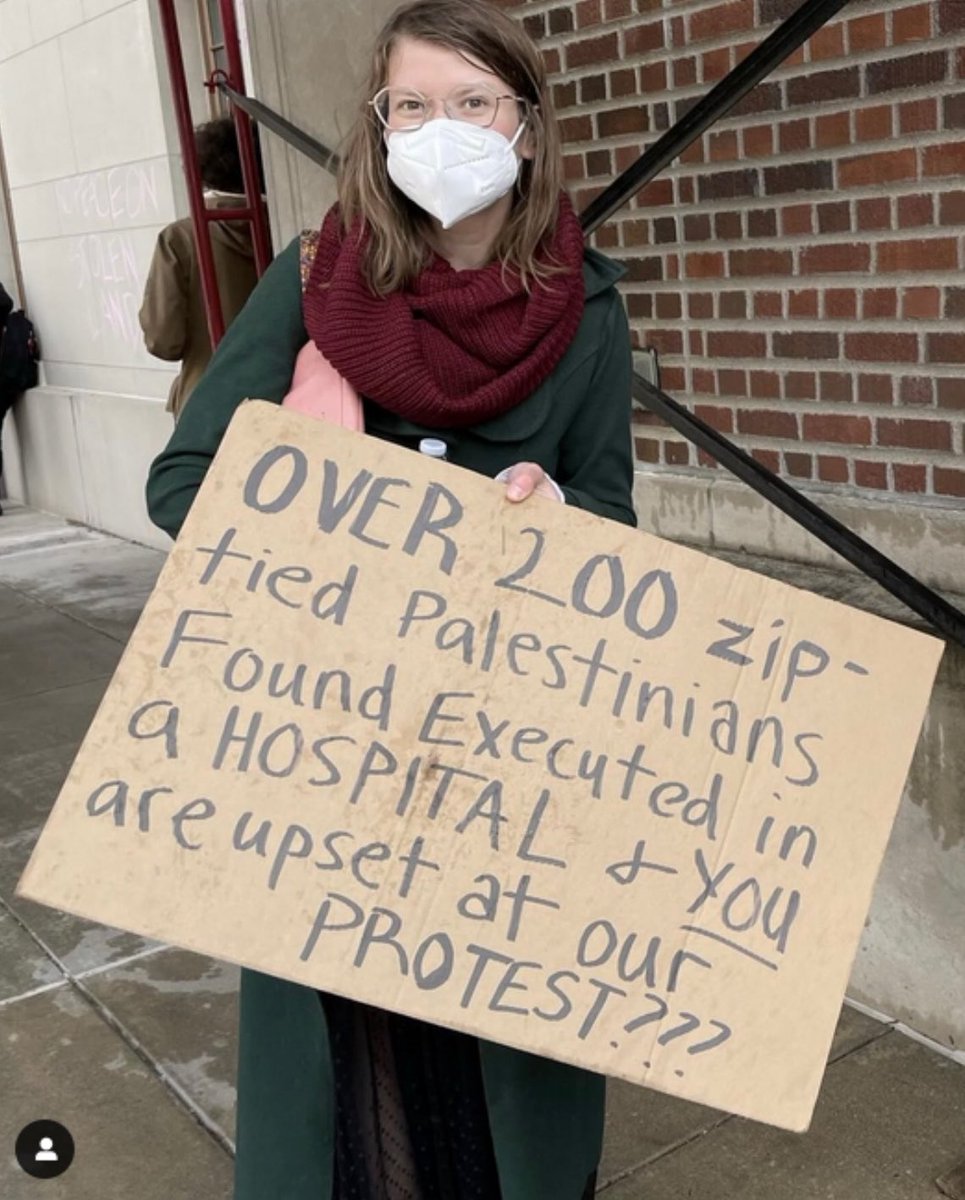 OVER 200 zip-
tied Palestinians
Found Executed in
a HOSPITAL & YOU
are upset at our
PROTEST???
STOLEN
LAND